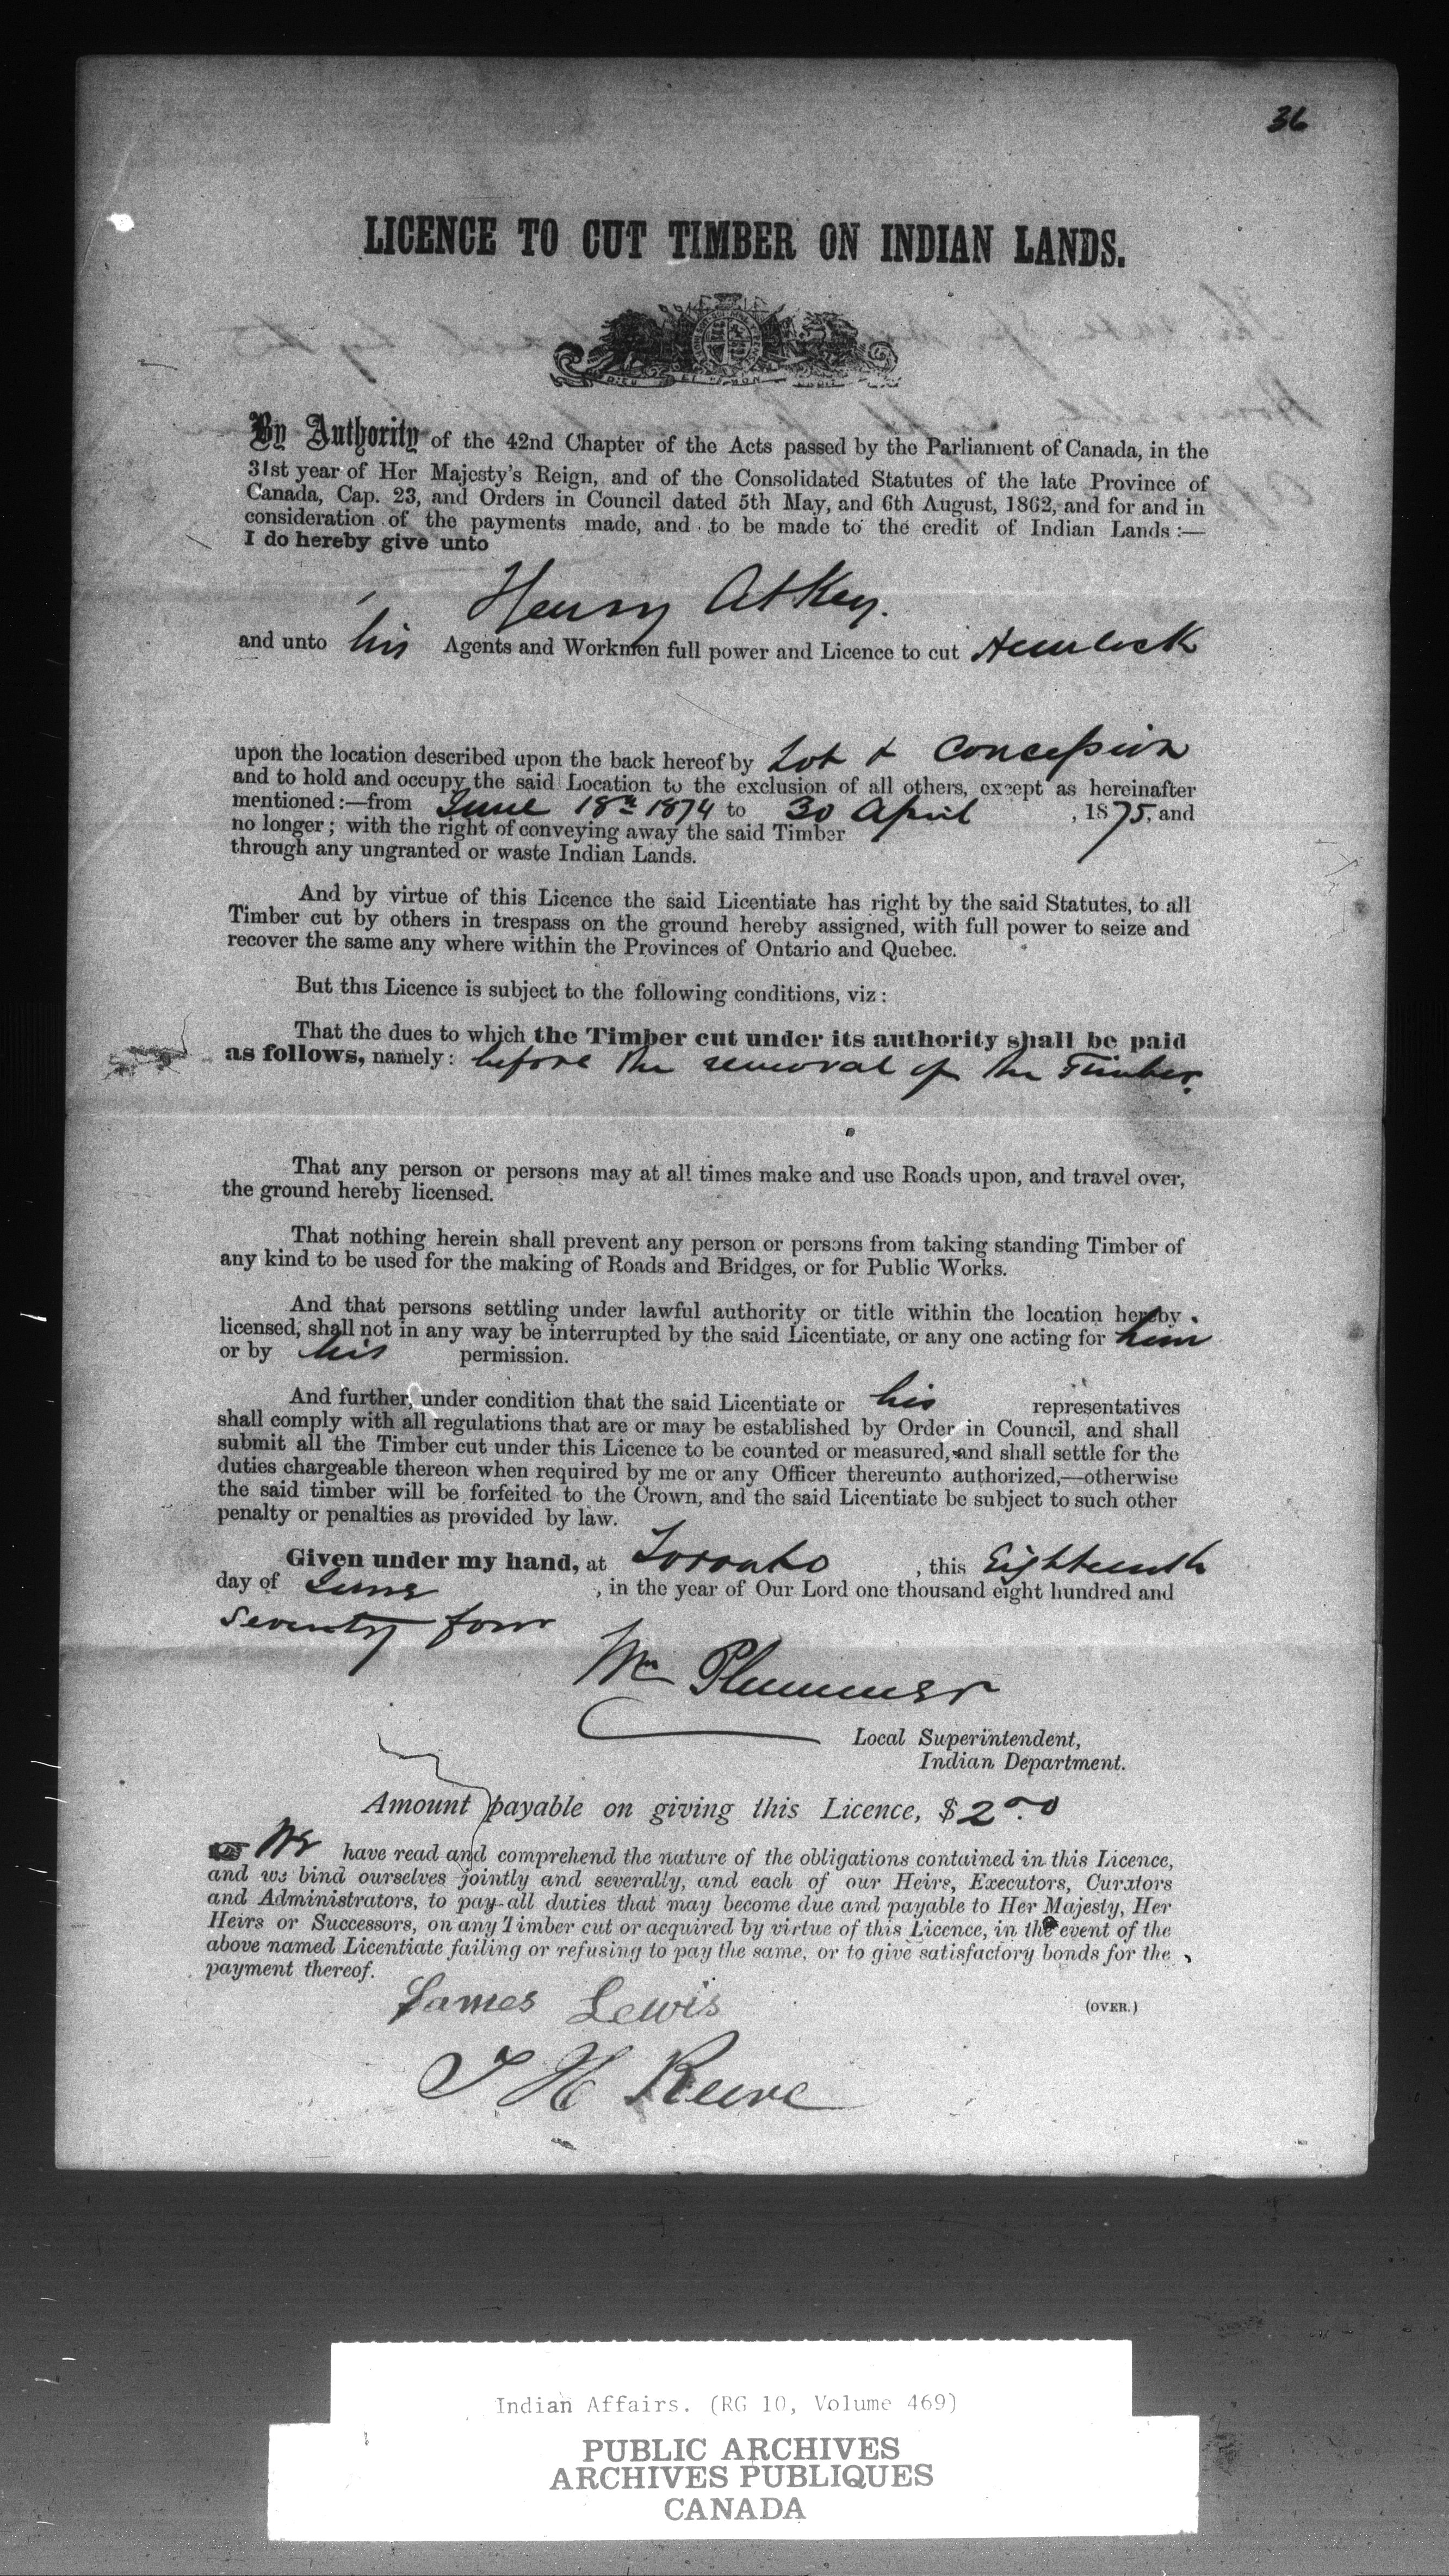 36
LICENCE TO CUT TIMBER ON INDIAN LANDS.
DIEU ET MON DROIT
By Authority of the 42nd Chapter of the Acts passed by the Parliament of Canada, in the
31st year of Her Majesty's Reign, and of the Consolidated Statutes of the late Province of
Canada, Cap. 23, and Orders in Council dated 5th May, and 6th August, 1862, and for and in
consideration of the payments made, and to be made to the credit of Indian Lands :—
I do hereby give unto
Henry Atkey.
and unto his Agents and Workmen full power and Licence to cut Hemlock
upon the location described upon the back hereof by Lot & Concession
and to hold and occupy the said Location to the exclusion of all others, except as hereinafter
mentioned :—from June 18th 1874 to 30 April , 1875, and
no longer ; with the right of conveying away the said Timber
through any ungranted or waste Indian Lands.
And by virtue of this Licence the said Licentiate has right by the said Statutes, to all
Timber cut by others in trespass on the ground hereby assigned, with full power to seize and
recover the same any where within the Provinces of Ontario and Quebec.
But this Licence is subject to the following conditions, viz :
That the dues to which the Timber cut under its authority shall be paid
as follows, namely : before the removal of the Timber.
That any person or persons may at all times make and use Roads upon, and travel over,
the ground hereby licensed.
That nothing herein shall prevent any person or persons from taking standing Timber of
any kind to be used for the making of Roads and Bridges, or for Public Works.
And that persons settling under lawful authority or title within the location hereby
licensed, shall not in any way be interrupted by the said Licentiate, or any one acting for him
or by his permission.
And further, under condition that the said Licentiate or his representatives
shall comply with all regulations that are or may be established by Order in Council, and shall
submit all the Timber cut under this Licence to be counted or measured, and shall settle for the
duties chargeable thereon when required by me or any Officer thereunto authorized,—otherwise
the said timber will be forfeited to the Crown, and the said Licentiate be subject to such other
penalty or penalties as provided by law.
Given under my hand, at Toronto , this Eighteenth
day of June , in the year of Our Lord one thousand eight hundred and
Seventy four
Wm Plummer
Local Superintendent,
Indian Department.
Amount payable on giving this Licence, $2.00
We have read and comprehend the nature of the obligations contained in this Licence,
and we bind ourselves jointly and severally, and each of our Heirs, Executors, Curators
and Administrators, to pay all duties that may become due and payable to Her Majesty, Her
Heirs or Successors, on any Timber cut or acquired by virtue of this Licence, in the event of the
above named Licentiate failing or refusing to pay the same, or to give satisfactory bonds for the
payment thereof.
James Lewis
(OVER.)
T H Reeve
Indian Affairs. (RG 10, Volume 469)
PUBLIC ARCHIVES
ARCHIVES PUBLIQUES
CANADA